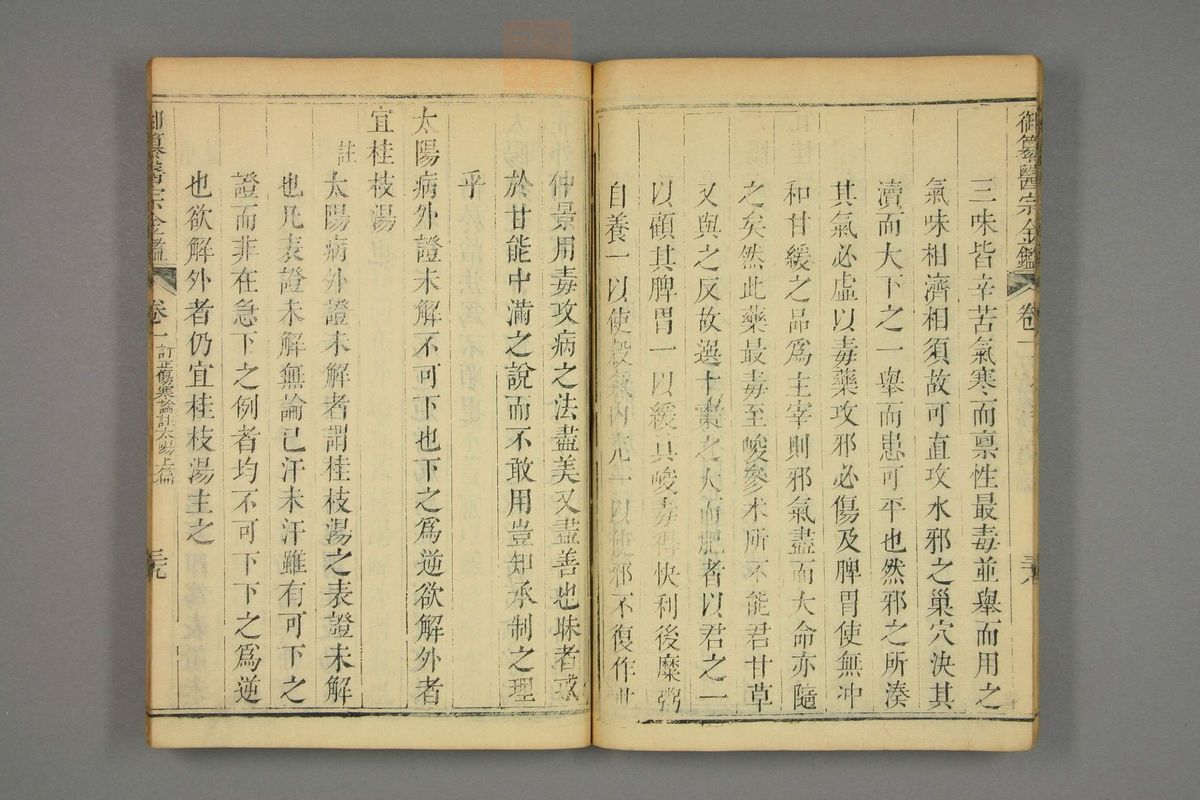 御纂醫宗金鑑 卷一 三八
三味皆辛苦氣寒而禀性最毒並舉而用之
氣味相濟相須故可直攻水邪之巢穴決其
瀆而大下之一舉而患可平也然邪之所湊
其氣必虛以毒藥攻邪必傷及脾胃使無冲
和甘緩之品爲主宰則邪氣盡而大命亦隨
之矣然此藥最毒至峻參术所不能君甘草
又與之反故選十棗之大而肥者以君之一
以顧其脾胃一以緩其峻毒得快利後糜粥
自養一以使穀氣內充一以使邪不復作此
仲景用毒攻病之法盡美又盡善也昧者惑
於甘能中滿之說而不敢用豈知承制之理
乎
太陽病外證未解不可下也下之爲逆欲解外者
宜桂枝湯
註太陽病外證未解者謂桂枝湯之表證未解
也凡表證未解無論已汗未汗雖有可下之
證而非在急下之例者均不可下下之爲逆
也欲解外者仍宜桂枝湯主之
御纂醫宗金鑑 卷一 訂正傷寒論註太陽上篇 三九